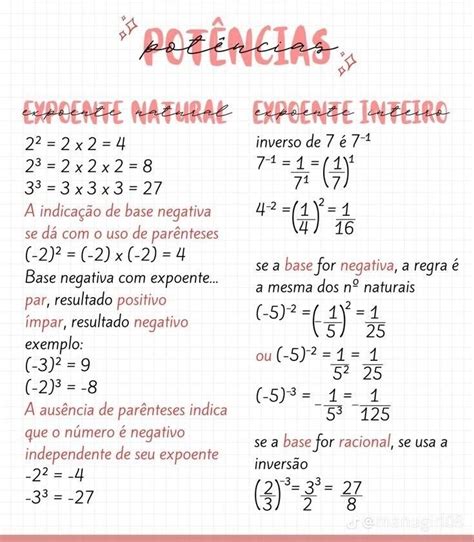 POTÊNCIAS
potências
EXPOENTE NATURAL
expoente natural
2² = 2 x 2 = 4
2³ = 2 x 2 x 2 = 8
3³ = 3 x 3 x 3 = 27
A indicação de base negativa
se dá com o uso de parênteses
(-2)² = (-2) x (-2) = 4
Base negativa com expoente...
par, resultado positivo
ímpar, resultado negativo
exemplo:
(-3)² = 9
(-2)³ = -8
A ausência de parênteses indica
que o número é negativo
independente de seu expoente
-2² = -4
-3³ = -27
EXPOENTE INTEIRO
expoente inteiro
inverso de 7 é 7⁻¹
7⁻¹ = 1/7¹ = (1/7)¹
4⁻² = (1/4)² = 1/16
se a base for negativa, a regra é
a mesma dos nº naturais
(-5)⁻² = (-1/5)² = 1/25
ou (-5)⁻² = 1/5² = 1/25
(-5)⁻³ = -1/5³ = -1/125
se a base for racional, se usa a
inversão
(2/3)⁻³ = 3³/2 = 27/8